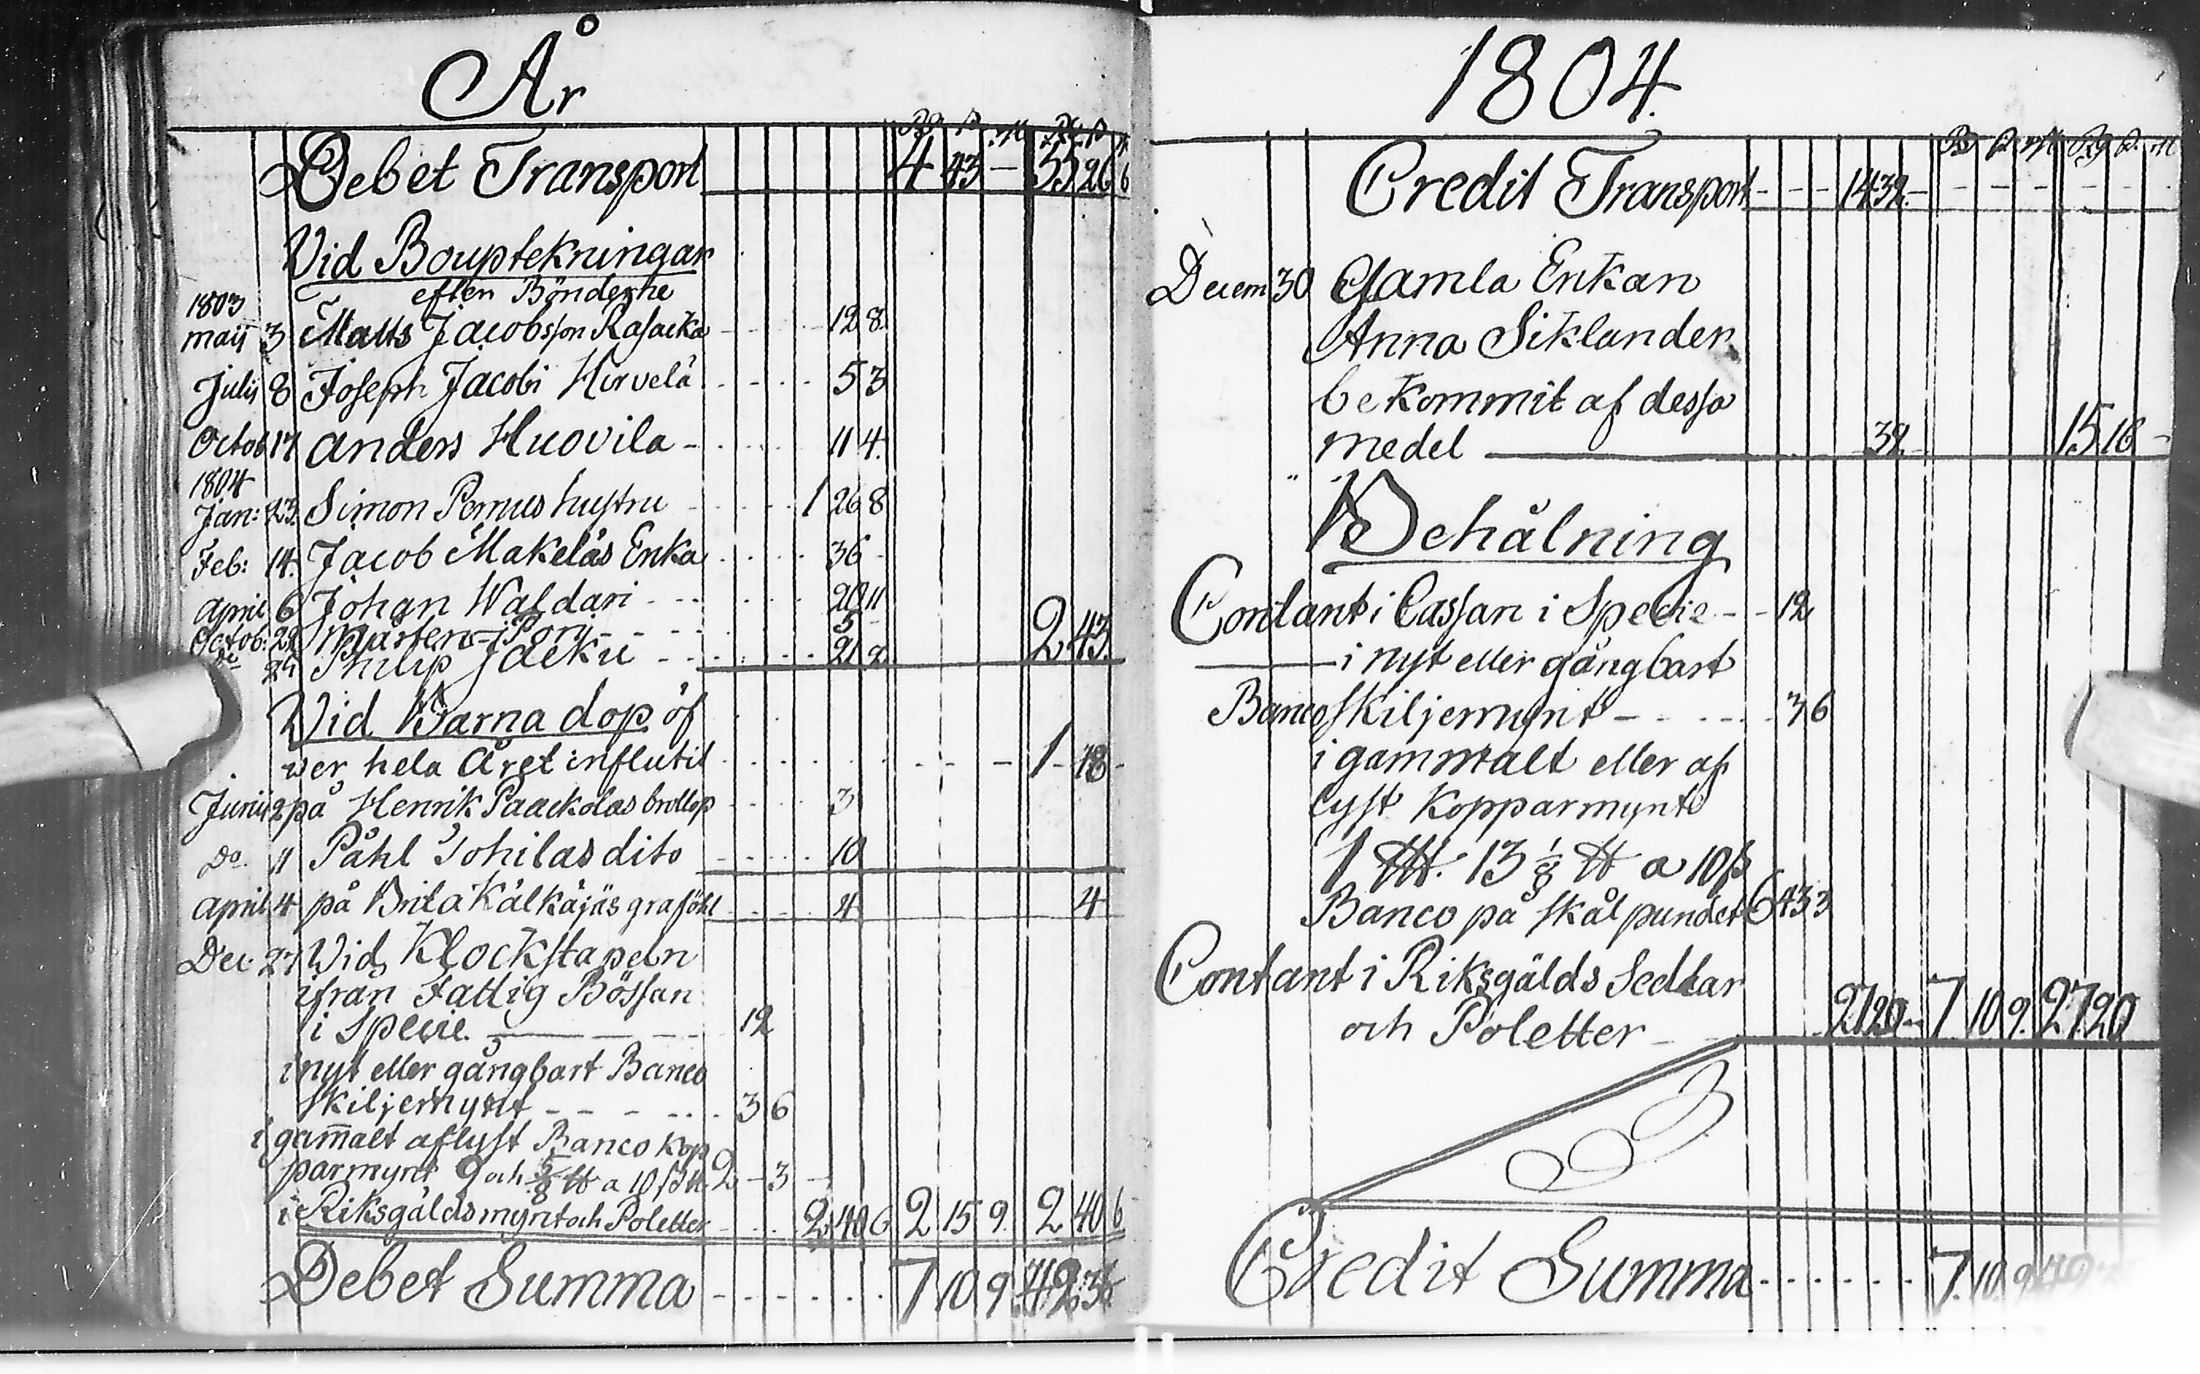 År
Debet Transport 4 43 – 35 26 6
Vid Bouptekningar
efter Bönderne
1803
maij 3 Matts Jacobsson Rasacka - - - 12 8.
Julij 8 Joseph Jacobi Hirvelä - - - - 5 3
Octob 17 anders Huovila - - - - 11 4.
1804
Jan: 23. Simon Pernus hustru - - - 1 26 8
Feb: 14. Jacob Makeläs Enka - - - - 36 -
April 6 Johan Waldari - - - - 20 11
Octob: 22 Mårten Pori - - - - 5 -
De 24 Philip Jaeku - - - - 21 2. 2 43.
Vid Barna dop öf
wer hela Året influtit - - - - - 1 - 18 -
Junii 2 på Henrik Paackolas bröllop - - - - 3
Do. 11 Påhl Tohilas dito - - - - 10
April 4 på Brita Kälkäjäs graföhl - - - - 4 4
Dec. 27 Vid Klockstapeln
ifrån Fattig Bössan
i Specie - - - 12
i nyt eller gångbart Banco
skiljemynt - - - - - 3 6
i gam̄alt aflyst Banco kop
parmynt 9 och 5/8 ℔ a 10 ß 2 - 3 -
i Riksgäldsmynt och Poletter - - - 2 40 6 2 15 9. 2 40 6
Debet Summa - - - - - - 7 10 9. 42. 36
1804.
Credit Transport - - - 14 32 - - - - - - -
Decem 30 Gamla Enkan
Anna Siklander
bekommit af dessa
medel 32. - 15 16 -
Behålning
Contant i Cassan i Specie - - 12
i nyt eller gångbart
Banco skiljemynt - - - - - 3 6
i gammalt eller af
lyst kopparmynt
1 L℔. 13 1/8 ℔ a 10 ß
Banco på skålpundet 6 43 3
Contant i Riksgälds Sedlar
och Poletter - - 27 20 - 7 10 9. 27 20
Credit Summa - - - - - - 7. 10. 9